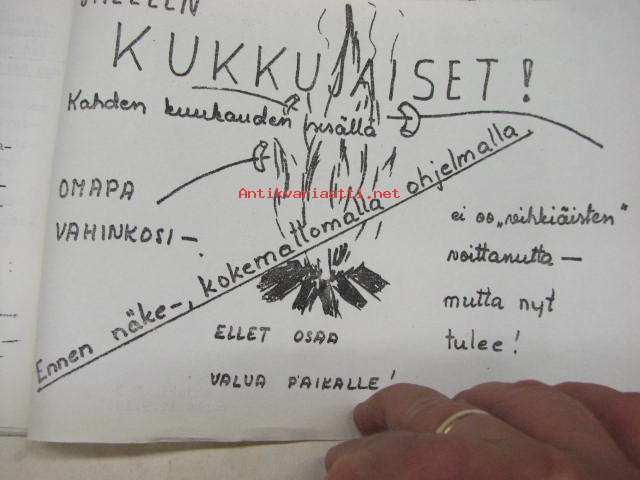 KUKKUJAISET!
Kahden kuukauden sisällä
Antikvariaatti.net
OMAPA
VAHINKOSI —
Ennen näke-, kokemattomalla ohjelmalla
ei oo „vihkiäisten"
voittanutta —
mutta nyt
tulee!
ELLET OSAA
VALUA PAIKALLE!